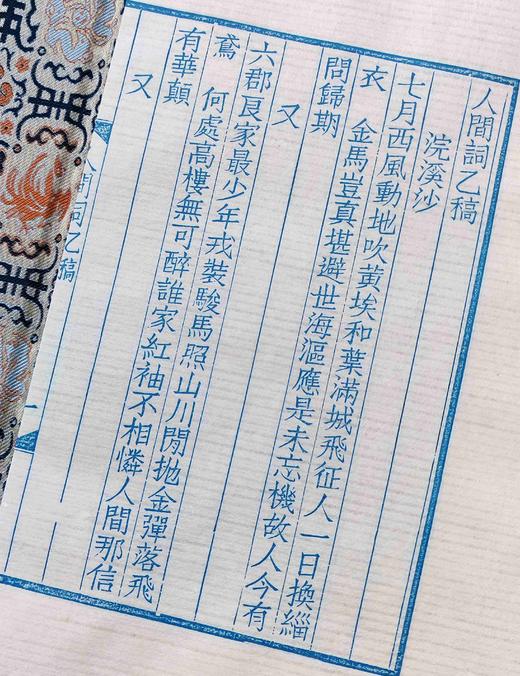 人間詞乙稿
浣溪沙
七月西風動地吹黃埃和葉滿城飛征人一日換緇
衣　金馬豈真堪避世海漚應是未忘機故人今有
問歸期
又
六郡良家最少年戎裝駿馬照山川閒抛金彈落飛
鳶　何處高樓無可醉誰家紅袖不相憐人間那信
有華顛
又
人間詞乙稿
一